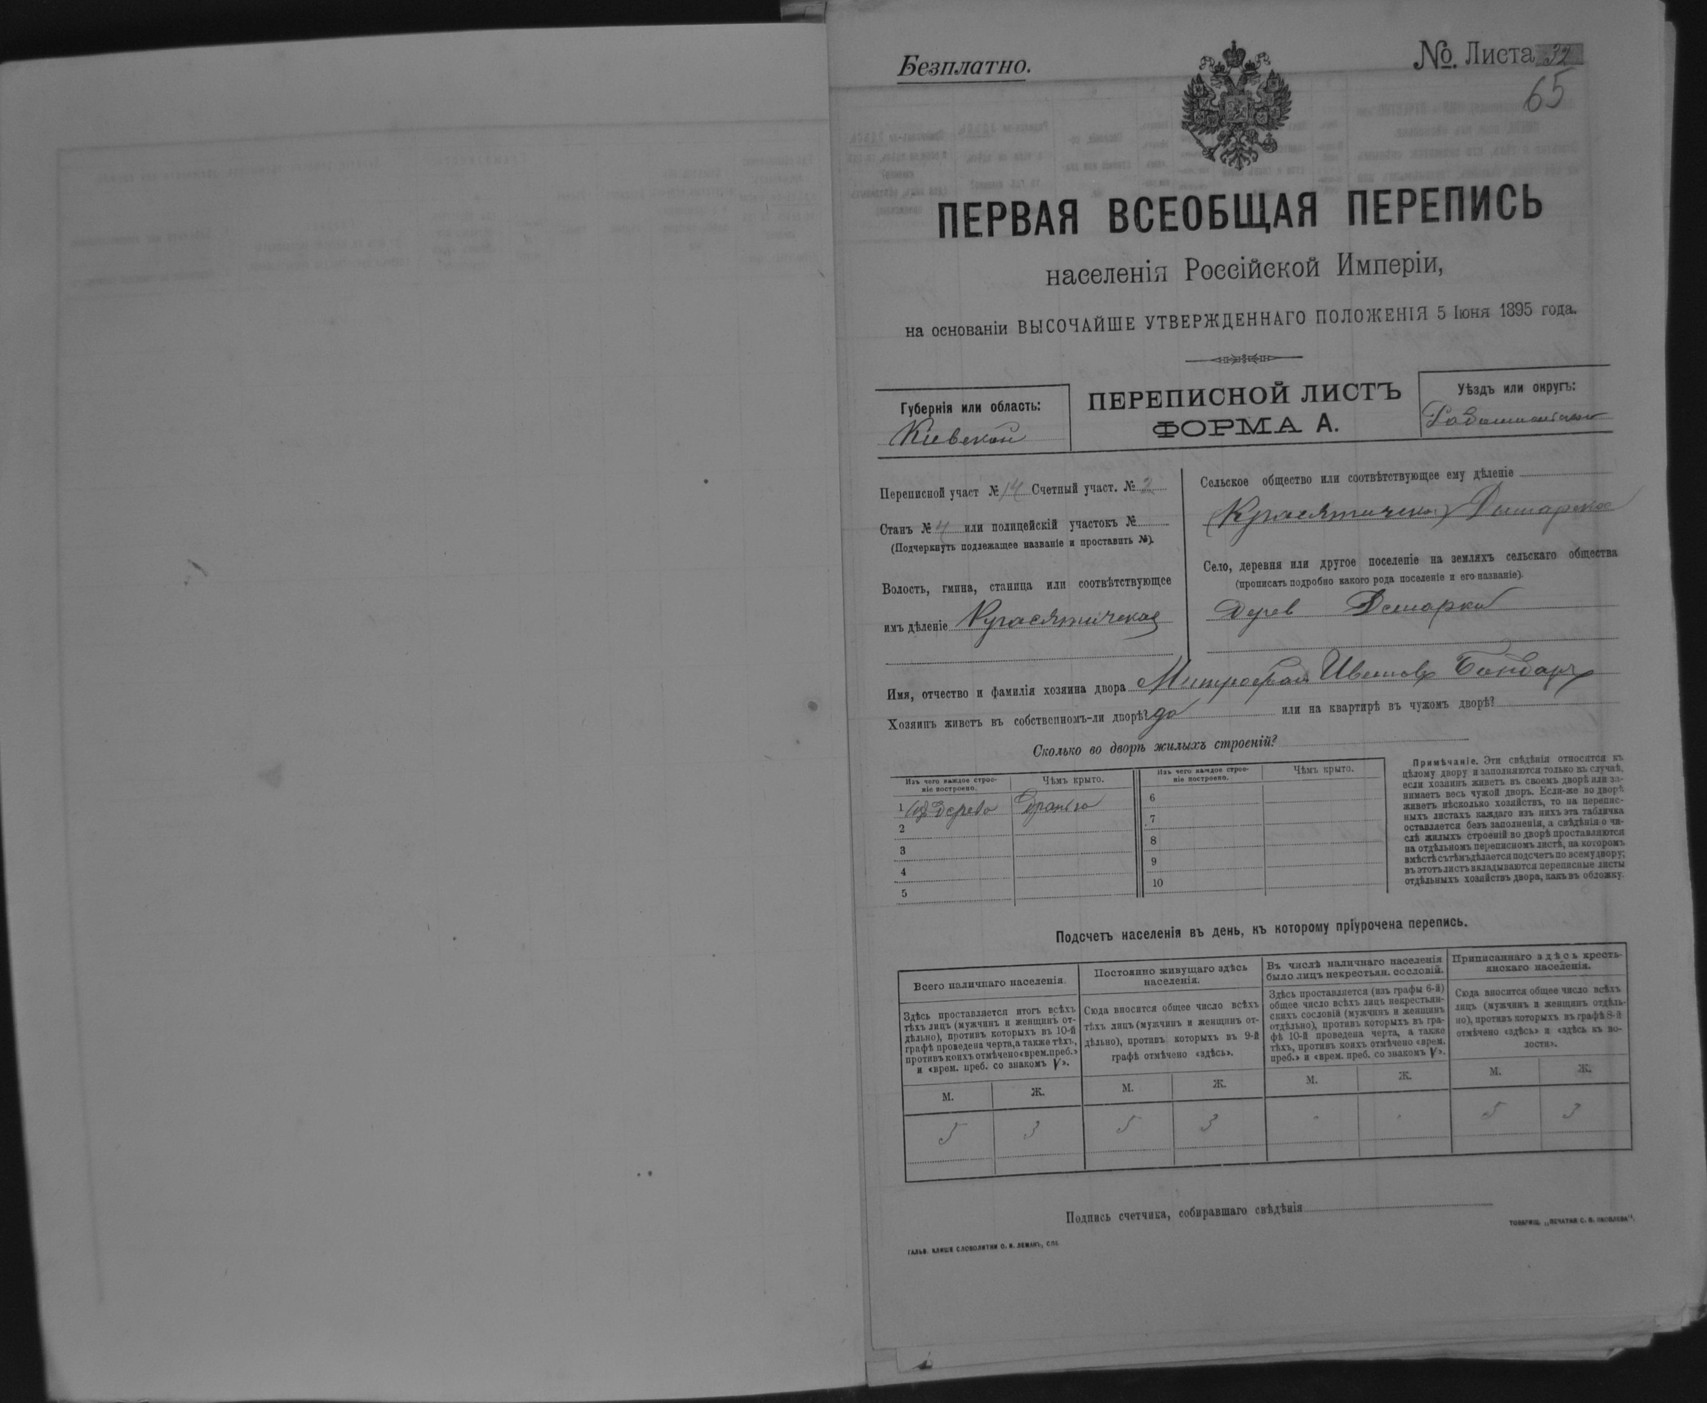 Безплатно.
№. Листа 32
65
ПЕРВАЯ ВСЕОБЩАЯ ПЕРЕПИСЬ
населенія Россійской Имперіи,
на основаніи ВЫСОЧАЙШЕ УТВЕРЖДЕННАГО ПОЛОЖЕНІЯ 5 Іюня 1895 года.
Губернія или область:
Кіевской
ПЕРЕПИСНОЙ ЛИСТЪ
ФОРМА А.
Уѣздъ или округъ:
Переписной участ № 14 Счетный участ. № 2
Станъ № 4 или полицейскій участокъ №
(Подчеркнуть подлежащее названіе и проставить №).
Волость, гмина, станица или соотвѣтствующее
имъ дѣленіе Красятичская
Сельское общество или соотвѣтствующее ему дѣленіе
Село, деревня или другое поселеніе на земляхъ сельскаго общества
(прописать подробно какого рода поселеніе и его названіе).
Дерев
Имя, отчество и фамилія хозяина двора Митрофан Иванов Бондарь
Хозяинъ живетъ въ собственномъ-ли дворѣ? да или на квартирѣ въ чужомъ дворѣ?
Сколько во дворѣ жилыхъ строеній?
Изъ чего каждое строе-
ніе построено.
Чѣмъ крыто.
Изъ чего каждое строе-
ніе построено.
Чѣмъ крыто.
1 из дерева
2
3
4
5
6
7
8
9
10
Примѣчаніе. Эти свѣдѣнія относятся къ
цѣлому двору и заполняются только въ случаѣ,
если хозяинъ живетъ въ своемъ дворѣ или за-
нимаетъ весь чужой дворъ. Если-же во дворѣ
живетъ нѣсколько хозяйствъ, то на перепис-
ныхъ листахъ каждаго изъ нихъ эта табличка
оставляется безъ заполненія, а свѣдѣнія о чи-
слѣ жилыхъ строеній во дворѣ проставляются
на отдѣльномъ переписномъ листѣ, на которомъ
вмѣстѣ съ тѣмъ дѣлается подсчетъ по всему двору;
въ этотъ листъ вкладываются переписные листы
отдѣльныхъ хозяйствъ двора, какъ въ обложку.
Подсчетъ населенія въ день, къ которому пріурочена перепись.
Всего наличнаго населенія.
Здѣсь проставляется итогъ всѣхъ
тѣхъ лицъ (мужчинъ и женщинъ от-
дѣльно), противъ которыхъ въ 10-й
графѣ проведена черта, а также тѣхъ,
противъ коихъ отмѣчено «врем. преб.»
и «врем. преб. со знакомъ V».
М. Ж.
5 3
Постоянно живущаго здѣсь
населенія.
Сюда вносится общее число всѣхъ
тѣхъ лицъ (мужчинъ и женщинъ от-
дѣльно), противъ которыхъ въ 9-й
графѣ отмѣчено «здѣсь».
М. Ж.
5 3
Въ числѣ наличнаго населенія
было лицъ некрестьян. сословій.
Здѣсь проставляется (изъ графы 6-й)
общее число всѣхъ лицъ некрестьян-
скихъ сословій (мужчинъ и женщинъ
отдѣльно), противъ которыхъ въ гра-
фѣ 10-й проведена черта, а также
тѣхъ, противъ коихъ отмѣчено «врем.
преб.» и «врем. преб. со знакомъ V».
М. Ж.
- -
Приписаннаго здѣсь кресть-
янскаго населенія.
Сюда вносится общее число всѣхъ
лицъ (мужчинъ и женщинъ отдѣль-
но), противъ которыхъ въ графѣ 8-й
отмѣчено «здѣсь» и «здѣсь въ во-
лости».
М. Ж.
5 3
Подпись счетчика, собиравшаго свѣдѣнія
ГАЛЬВ. КЛИШЕ СЛОВОЛИТНИ О. И. ЛЕМАНЪ, СПБ.